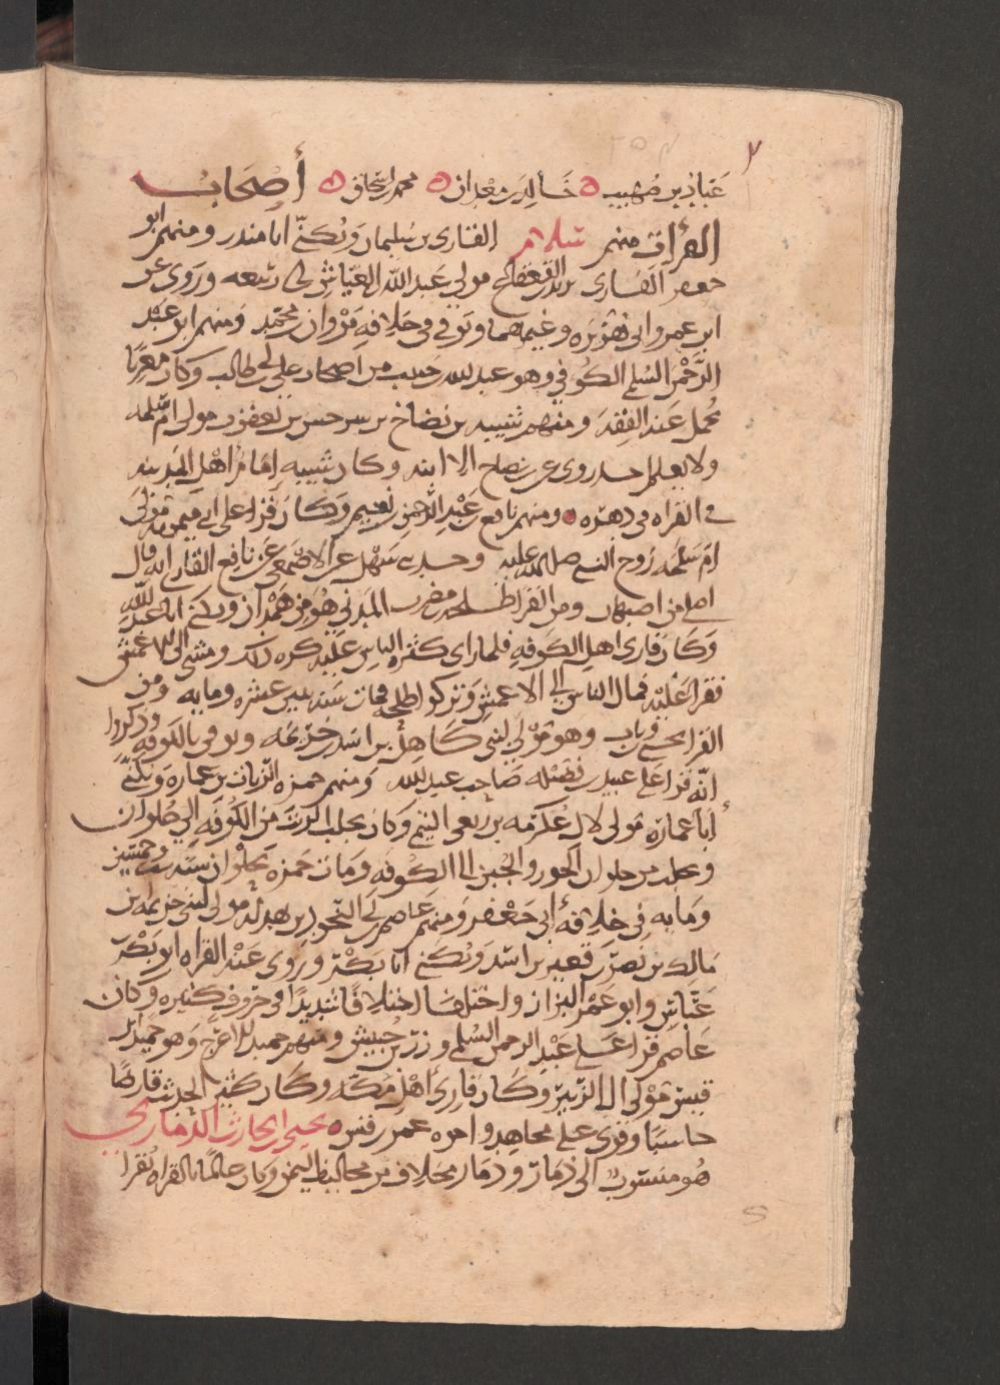 عباد بن صهيب ه خالد بن معدان ه محمد اسحاق ه أصحاب
القرآت منهم سلام القاري بن سليمان ويكنى ابا منذر ومنهم ابو
جعفر القاري يزيد القعقاع مولي عبد الله العياش بن ابي ربيعه وروي عن
ابن عمر وابي هريره وغيرهما وتوفي في خلافه مروان بن محمد ومنهم ابو عبد
الرحمن السلمي الكوفي وهو عبد لله حبيب من اصحاب علي بن ابي طالب وكان مقريا
يحمل عنه الفقه ومنهم شيبه بن نصاح بن سرجس بن يعقوب مولي ام سلمه
ولا يعلم احد روى عن نصاح الا ابنه وكان شيبه إمام اهل المدينه
في القراه في دهره ه ومنهم نافع بن عبد الرحمن نعيم وكان قرا علي ابي ميمونه مولي
ام سلمه زوج النبي صلى الله عليه وحدث سهل عن الاصمعي عن نافع القاري انه قال
اصلي من اصبهان ومن القرا طلحه مصرف المدني هو من همدان ويكنى ابا عبد لله
وكان قاري اهل الكوفه فلما راى كثره الناس عليه كره ذلك ومشى الى الاعمش
فقرا عليه فمال الناس الي الاعمش وتركوا طلحه فمات سنه اثنين عشره ومايه ومن
القرا يحيى وثاب وهو مولي لبني كاهل بن اسد بن خزيمه وتوفى بالكوفه وذكروا
انه قرا على عبيد بن نضيله صاحب عبد لله ومنهم حمزه الزيات بن عماره ويكنى
أبا عماره مولى لال عكرمه بن ربعي التيمي وكان يجلب الزيت من الكوفه الي حلوان
ويجلب من حلوان الجوز والجبن الى الكوفه ومات حمزه بحلوان سنه ست وخمسين
ومايه في خلافه أبي جعفر ومنهم عاصم بن ابي النجود بن بهدله مولى لبني خزيمه بن
مالك بن نصر بن قعين بن اسد ويكنى ابا بكر وروى عنه القراه ابو بكر بن
عياش وابو عمر البزاز واختلفا اختلافا شديدا في حروف كثيره وكان
عاصم قرا على عبد الرحمن السلمي وزر بن حبيش ومنهم حميد الاعرج وهو حميد بن
قيس مولى ال الزبير وكان قاري اهل مكه وكان كثير الحديث قارضا
حاسبا وقرى على مجاهد واخوه عمر بن قيس ه يحيى ابن الحارث الذماري
هو منسوب الى ذمار وذمار مخلاف من مخاليف اليمن وكان عالما بالقراه يقرا